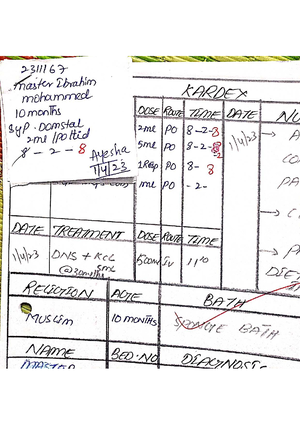 2311167
Master Ibrahim
mohammed
10 months
Syp. Domstal
2ml /po/tid
8 - 2 - 8
Ayesha
1/4/23
KARDEX
DOSE ROUTE TIME DATE NU
2ml PO 8-2-8 1/4/23
5ml PO 8-2-8
1Resp PO 8- 8
1ml PO -2-
DATE TREATMENT DOSE ROUTE TIME
1/4/23 DNS + KCL 500ml IV 11
5ml
DIE
RELIGION AGE BATH
MUSLIM 10 months SPONGE BATH
NAME BED.NO DIAGNOSIS
MASTER